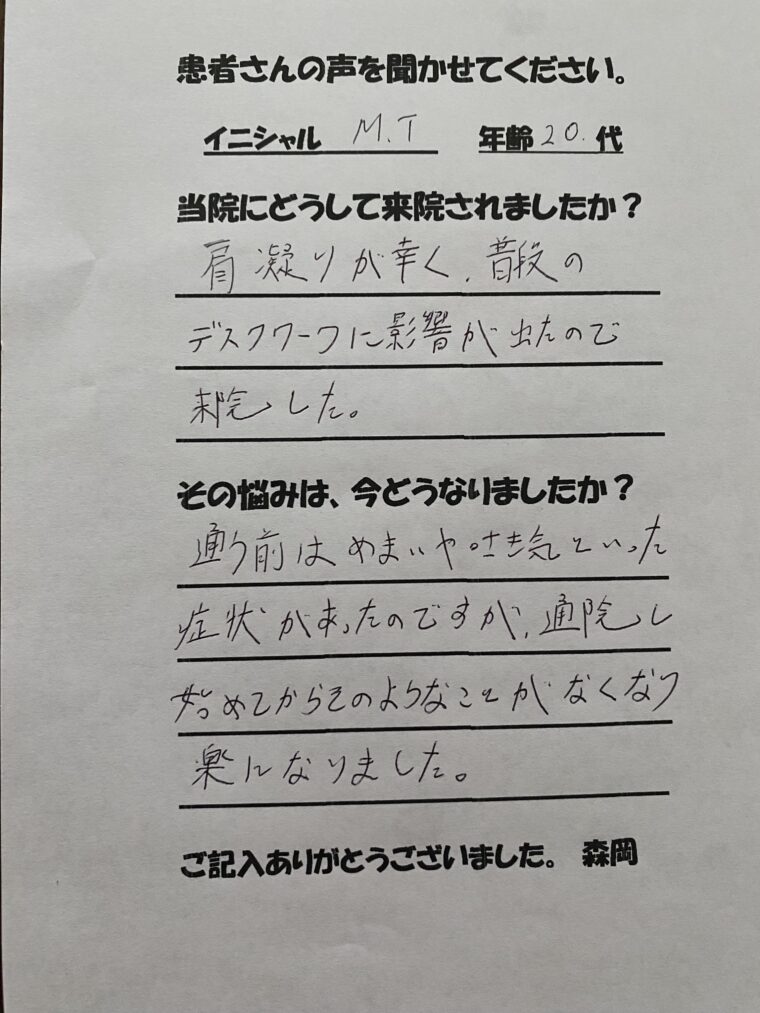 患者さんの声を聞かせてください。
イニシャル M.T 年齢 20. 代
当院にどうして来院されましたか？
肩凝りが辛く、普段の
デスクワークに影響が出たので
来院しました。
その悩みは、今どうなりましたか？
通う前はめまいや吐き気といった
症状があったのですが、通院し
始めてからそのようなことがなくなり
楽になりました。
ご記入ありがとうございました。 森岡